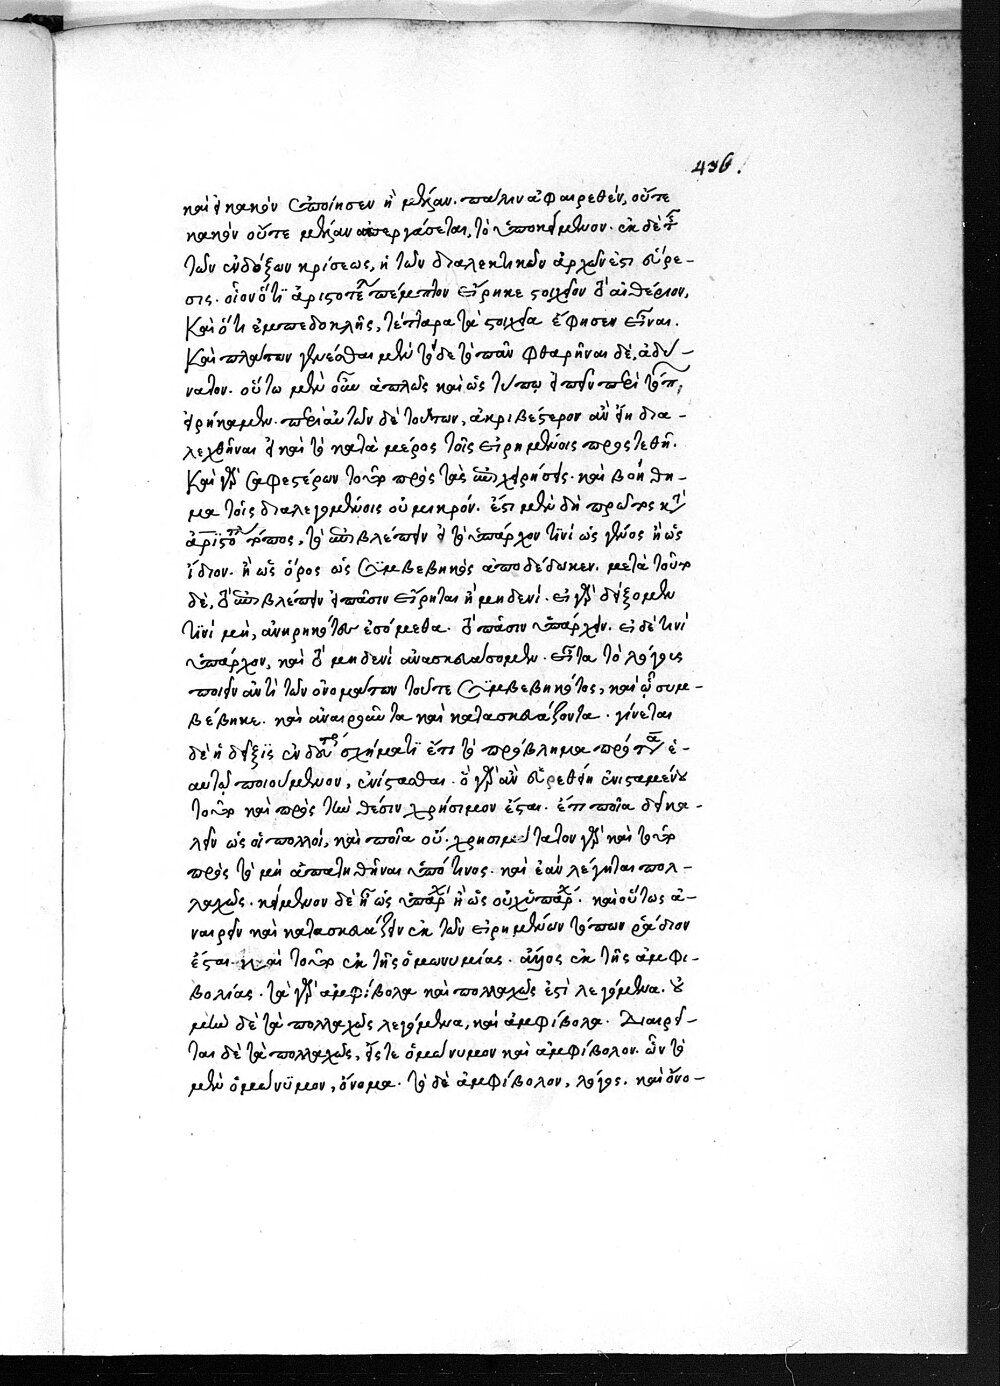 436.
καὶ εἰ κακὸν ἐποίησεν ἢ μεῖζον. πάλιν ἀφαιρεθὲν, οὔτε
κακὸν οὔτε μεῖζον ἀπεργάσεται, τὸ ὑποκείμενον. ἐκ δὲ τ
τῶν ἐνδόξων κρίσεως, ἡ τῶν διαλεκτικῶν ἀρχῶν ἐστὶ εὕρε-
σις. οἷον ὅτι ἀριστοτέλης πέμπτον εἴρηκε στοιχεῖον τὸ αἰθέριον,
Καὶ ὅτι ἐμπεδοκλῆς, τέτταρα τὰ στοιχεῖα ἔφησεν εἶναι.
Καὶ πλάτων γενέσθαι μὲν τόδε τὸ πᾶν φθαρῆναι δὲ, ἀδύ-
νατον. οὕτω μὲν οὖν ἁπλῶς καὶ ὡς τύπῳ εἰπεῖν περὶ τόπ,
εἰρήκαμεν. περὶ αὐτῶν δὲ τούτων, ἀκριβέστερον ἂν εἴη δια-
λεχθῆναι εἰ καὶ τὸ κατὰ μέρος τοῖς εἰρημένοις προστεθῇ.
Καὶ γὰρ σαφεστέρων τοῦτο πρὸς τὰς ἐπιχειρήσεις. καὶ βοήθη-
μα τοῖς διαλεγομένοις οὐ μικρόν. ἔστι μὲν δὴ πρῶτος κατ
ἀριστοτέλη τόπος, τὸ ἐπιβλέπειν εἰ τὸ ὑπάρχον τινὶ ὡς γένος ἢ ὡς
ἴδιον. ἢ ὡς ὅρος ὡς συμβεβηκὸς ἀποδέδωκεν. μετὰ τοῦτο
δὲ, τὸ ἐπιβλέπειν εἰ πᾶσιν εἴρηται ἢ μηδενί. εἰ γὰρ δείξομεν
τινὶ μὴ, ἀνῃρηκότες ἐσόμεθα. τὸ πᾶσιν ὑπάρχειν. εἰ δὲ τινὶ
ὑπάρχον, καὶ τὸ μηδενὶ ἀνασκευάσομεν. εἶτα τὸ λόγους
ποιεῖν ἀντὶ τῶν ὀνομάτων τοῦτε συμβεβηκότος, καὶ ᾧ συμ-
βέβηκε. καὶ ἀναιροῦντα καὶ κατασκευάζοντα. γίνεται
δὲ ἡ δεῖξις ἐν δευτέρῳ σχήματι ἔτι τὸ πρόβλημα πρότασιν ἑ-
αυτῷ ποιούμενον, ἐνίστασθαι. ὃ γὰρ ἂν εὑρεθείη ἐνισταμένου
τοῦτο καὶ πρὸς τὴν θέσιν χρήσιμον ἔσται. ἔτι ποῖα δεῖ κα-
λεῖν ὡς οἱ πολλοί, καὶ ποῖα οὔ. χρησιμώτατον γὰρ καὶ τοῦτο
πρὸς τὸ μὴ ἀπατηθῆναι ὑπό τινος. καὶ ἐὰν λέγηται πολ-
λαχῶς. κείμενον δὲ ἢ ὡς ὑπάρχ ἢ ὡς οὐχ ὑπάρχ. καὶ οὕτως ἀ-
ναιρεῖν καὶ κατασκευάζειν ἐκ τῶν εἰρημένων τόπων ῥᾴδιον
ἔσται. καὶ τοῦτο ἐκ τῆς ὁμωνυμίας. ἄλλος ἐκ τῆς ἀμφι-
βολίας. τὰ γὰρ ἀμφίβολα καὶ πολλαχῶς ἐστὶ λεγόμενα. οὐ
μὴν δὲ τὰ πολλαχῶς λεγόμενα, καὶ ἀμφίβολα. Διαιρεῖ-
ται δὲ τὰ πολλαχῶς, εἴς τε ὁμώνυμον καὶ ἀμφίβολον. ὧν τὸ
μὲν ὁμώνυμον, ὄνομα. τὸ δὲ ἀμφίβολον, λόγος. καὶ ὄνο-